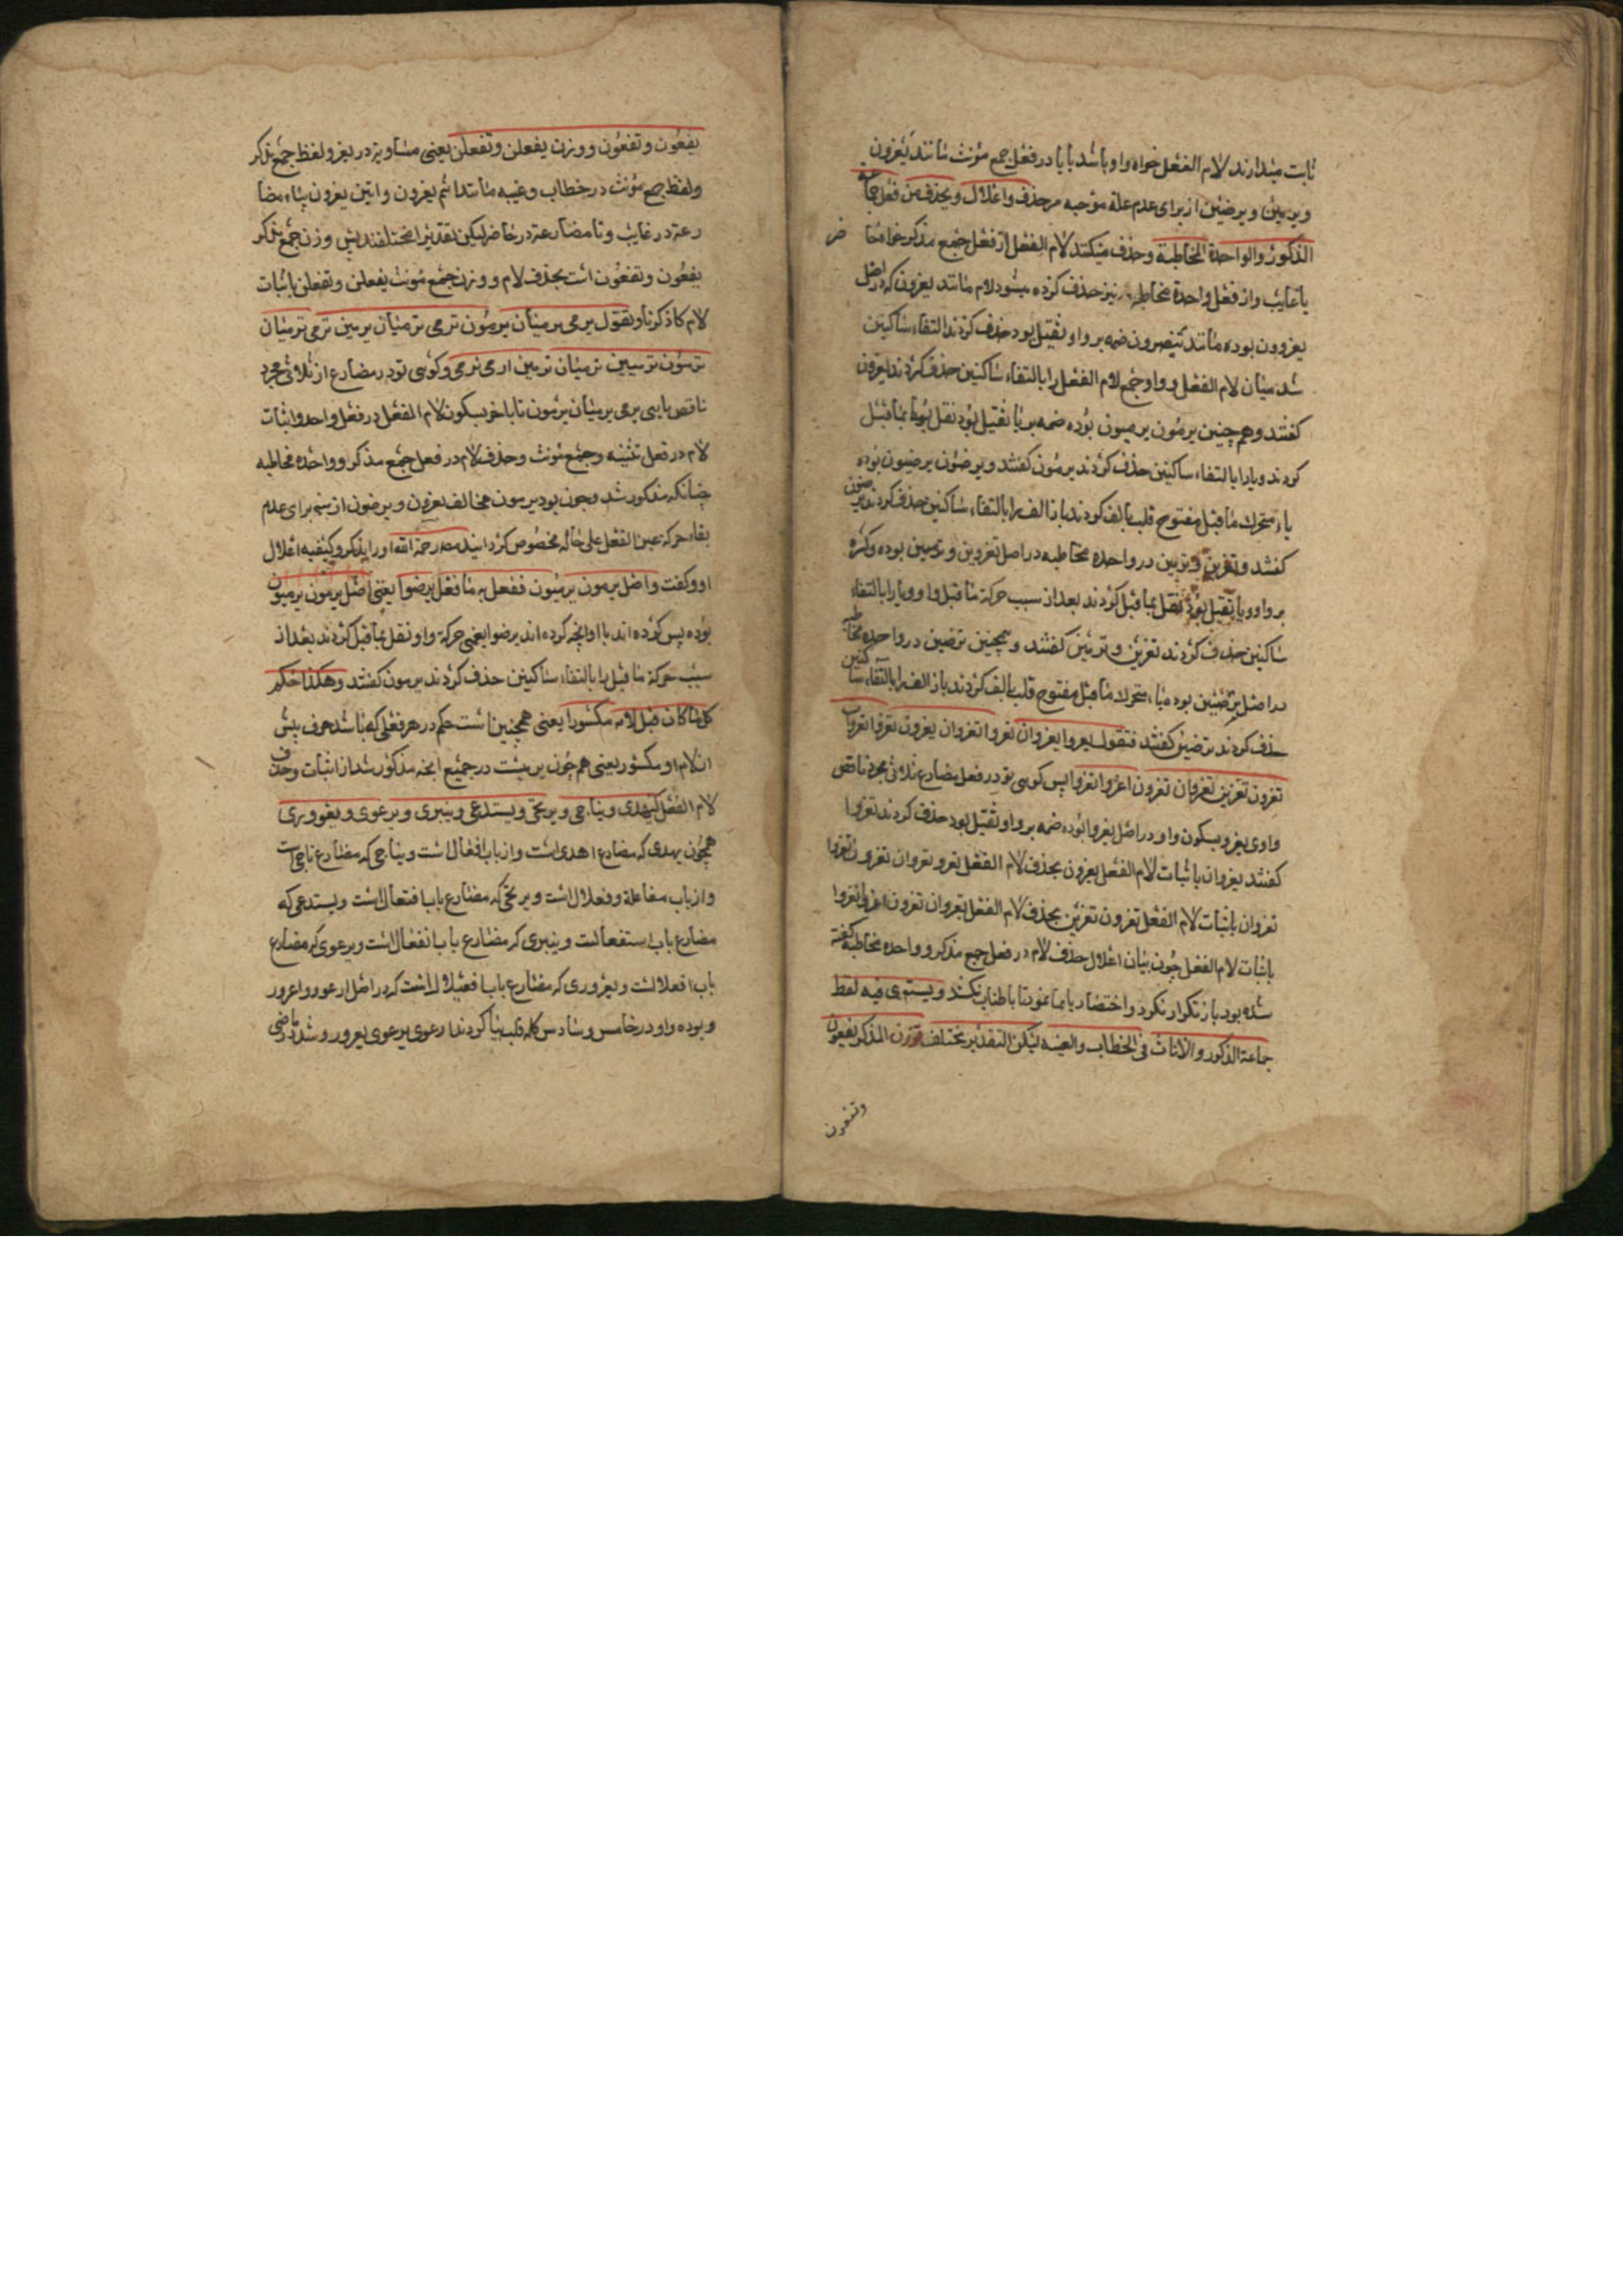 ثابت میدارند لام الفعل خواه واو باشد یا یا در فعل جمع مؤنث مانند یغزون
ویرمین ویرضین از برای عدم علة موجبه مر حذف واعلال ویحذف من فعل جماعة
الذکور والواحدة المخاطبة وحذف میکنند لام الفعل از فعل جمع مذکر خواه مخا
ض
یا غایب واز فعل واحدة مخاطبه نیز حذف کرده میشود لام مانند یغزون که در اصل
یغزوون بوده مانند ینصرون ضمه بر واو ثقیل بود حذف کردند التقاء ساکنین
شد میان لام الفعل و واو جمع لام الفعل را بالتقاء ساکنین حذف کردند یغزون
کفتند وهم چنین یرمون یرمیون بوده ضمه بر یا ثقیل بود نقل بما قبل
کردند ویا را بالتقاء ساکنین حذف کردند یرمون کفتند ویرضون یرضیون بوده
یاء متحرك ما قبل مفتوح قلب بالف کردند باز الف را بالتقاء ساکنین حذف کردند یرضون
کفتند وتغزین وترمین در واحده مخاطبه در اصل تغزوین وترمیین بوده وکسره
بر واو ویا ثقیل بود نقل بما قبل کردند بعد از سبب حرکة ما قبل واو ویا را بالتقاء
ساکنین حذف کردند تغزین وترمین کفتند وهمچنین ترضین در واحده مخاطبه
در اصل ترضیین بود یاء متحرك ما قبل مفتوح قلب بالف کردند باز الف را بالتقاء ساکنین
حذف کردند ترضین کفتند فتقول یغزوا یغزوان یغزوا تغزوان یغزون تغزوا تغزوان
تغزون تغزین تغزوان تغزون اغزوا نغزوا پس کویی تو در فعل مضارع ثلاثی مجرد ناقص
واوی یغزو بسکون واو در اصل یغزو بوده ضمه بر واو ثقیل بود حذف کردند تغزوا
کفتند یغزوان باثبات لام الفعل یغزون بحذف لام الفعل تغزو تغزوان تغزون تغزوا
تغزوان باثبات لام الفعل تغزون تغزین بحذف لام الفعل تغزوان تغزون اغزوا نغزوا
باثبات لام الفعل چون بیان اعلال حذف لام در فعل جمع مذکر و واحده مخاطبه کفته
شده بود باز تکرار نکرد واختصار باطناب نکند ویستوی فیه لفظ
جماعة الذکور والاناث فی الخطاب والغیبة لیکن التقدیر مختلف فوزن المذکر یفعون
وتفعون
یفعون وتفعون ووزن یفعلن وتفعلن یعنی مساویه در یغزو لفظ جمع مذکر
ولفظ جمع مؤنث در خطاب وغیبه مانند انتم یغزون وانتن یغزون بیاء مضا
رعة در غایب وتا مضارعة در حاضر لیکن تقدیرا مختلفند پس وزن جمع مذکر
یفعون وتفعون است بحذف لام و وزن جمع مؤنث یفعلن وتفعلن باثبات
لام کا ذکرنا وتقول یرمی یرمیان یرمون ترمی ترمیان یرمین ترمی ترمیان
ترمون ترمیین ترمیان ترمین ارمی نرمی وکویی تو در مضارع از ثلاثی مجرد
ناقص یایی یرمی یرمیان یرمون تا باخر بسکون لام الفعل در فعل واحد واثبات
لام در فعل تثنیه وجمع مؤنث وحذف لام در فعل جمع مذکر وواحده مخاطبه
چنانکه مذکور شد وچون بود یرمون مخالف یغزون ویرضون از برای عدم
بقاء حرکة عین الفعل علی حاله مخصوص کردانید مصه رحمة الله اورا بذکر وکیفیه اعلال
او وکفت واصل یرمون یرمیون ففعل به ما فعل برضوا یعنی اصل یرمون یرمیون
بوده پس کرده اند با او انچه کرده اند برضوا یعنی حرکة واو نقل بما قبل کردند بعد از
سبب حرکة ما قبل یا را بالتقاء ساکنین حذف کردند یرمون کفتند وهکذا حکم
کل ما کان قبل لامه مکسورا یعنی همچنین است حکم در هر فعلی که باشد حرف پیش
از لام او مکسور یعنی هم چون یرمیست در جمیع انچه مذکور شد از اثبات وحذف
لام الفعل کیهدی ویناجی ویرتجی ویستدعی وینبری ویرعوی ویعروری
همچون یهدی که مضارع اهدی است واز باب افعال است ویناجی که مضارع ناجی است
واز باب مفاعلة وفعلال است ویرتجی که مضارع باب افتعال است ویستدعی که
مضارع باب استفعالست وینبری که مضارع باب انفعال است ویرعوی که مضارع
باب افعلالست ویعروری که مضارع باب افعیلال است که در اصل ارعوو واعرور
و بوده واو در خامس وسادس کله قلب بیا کردند ارعوی یرعوی یعرور و شد ماضی